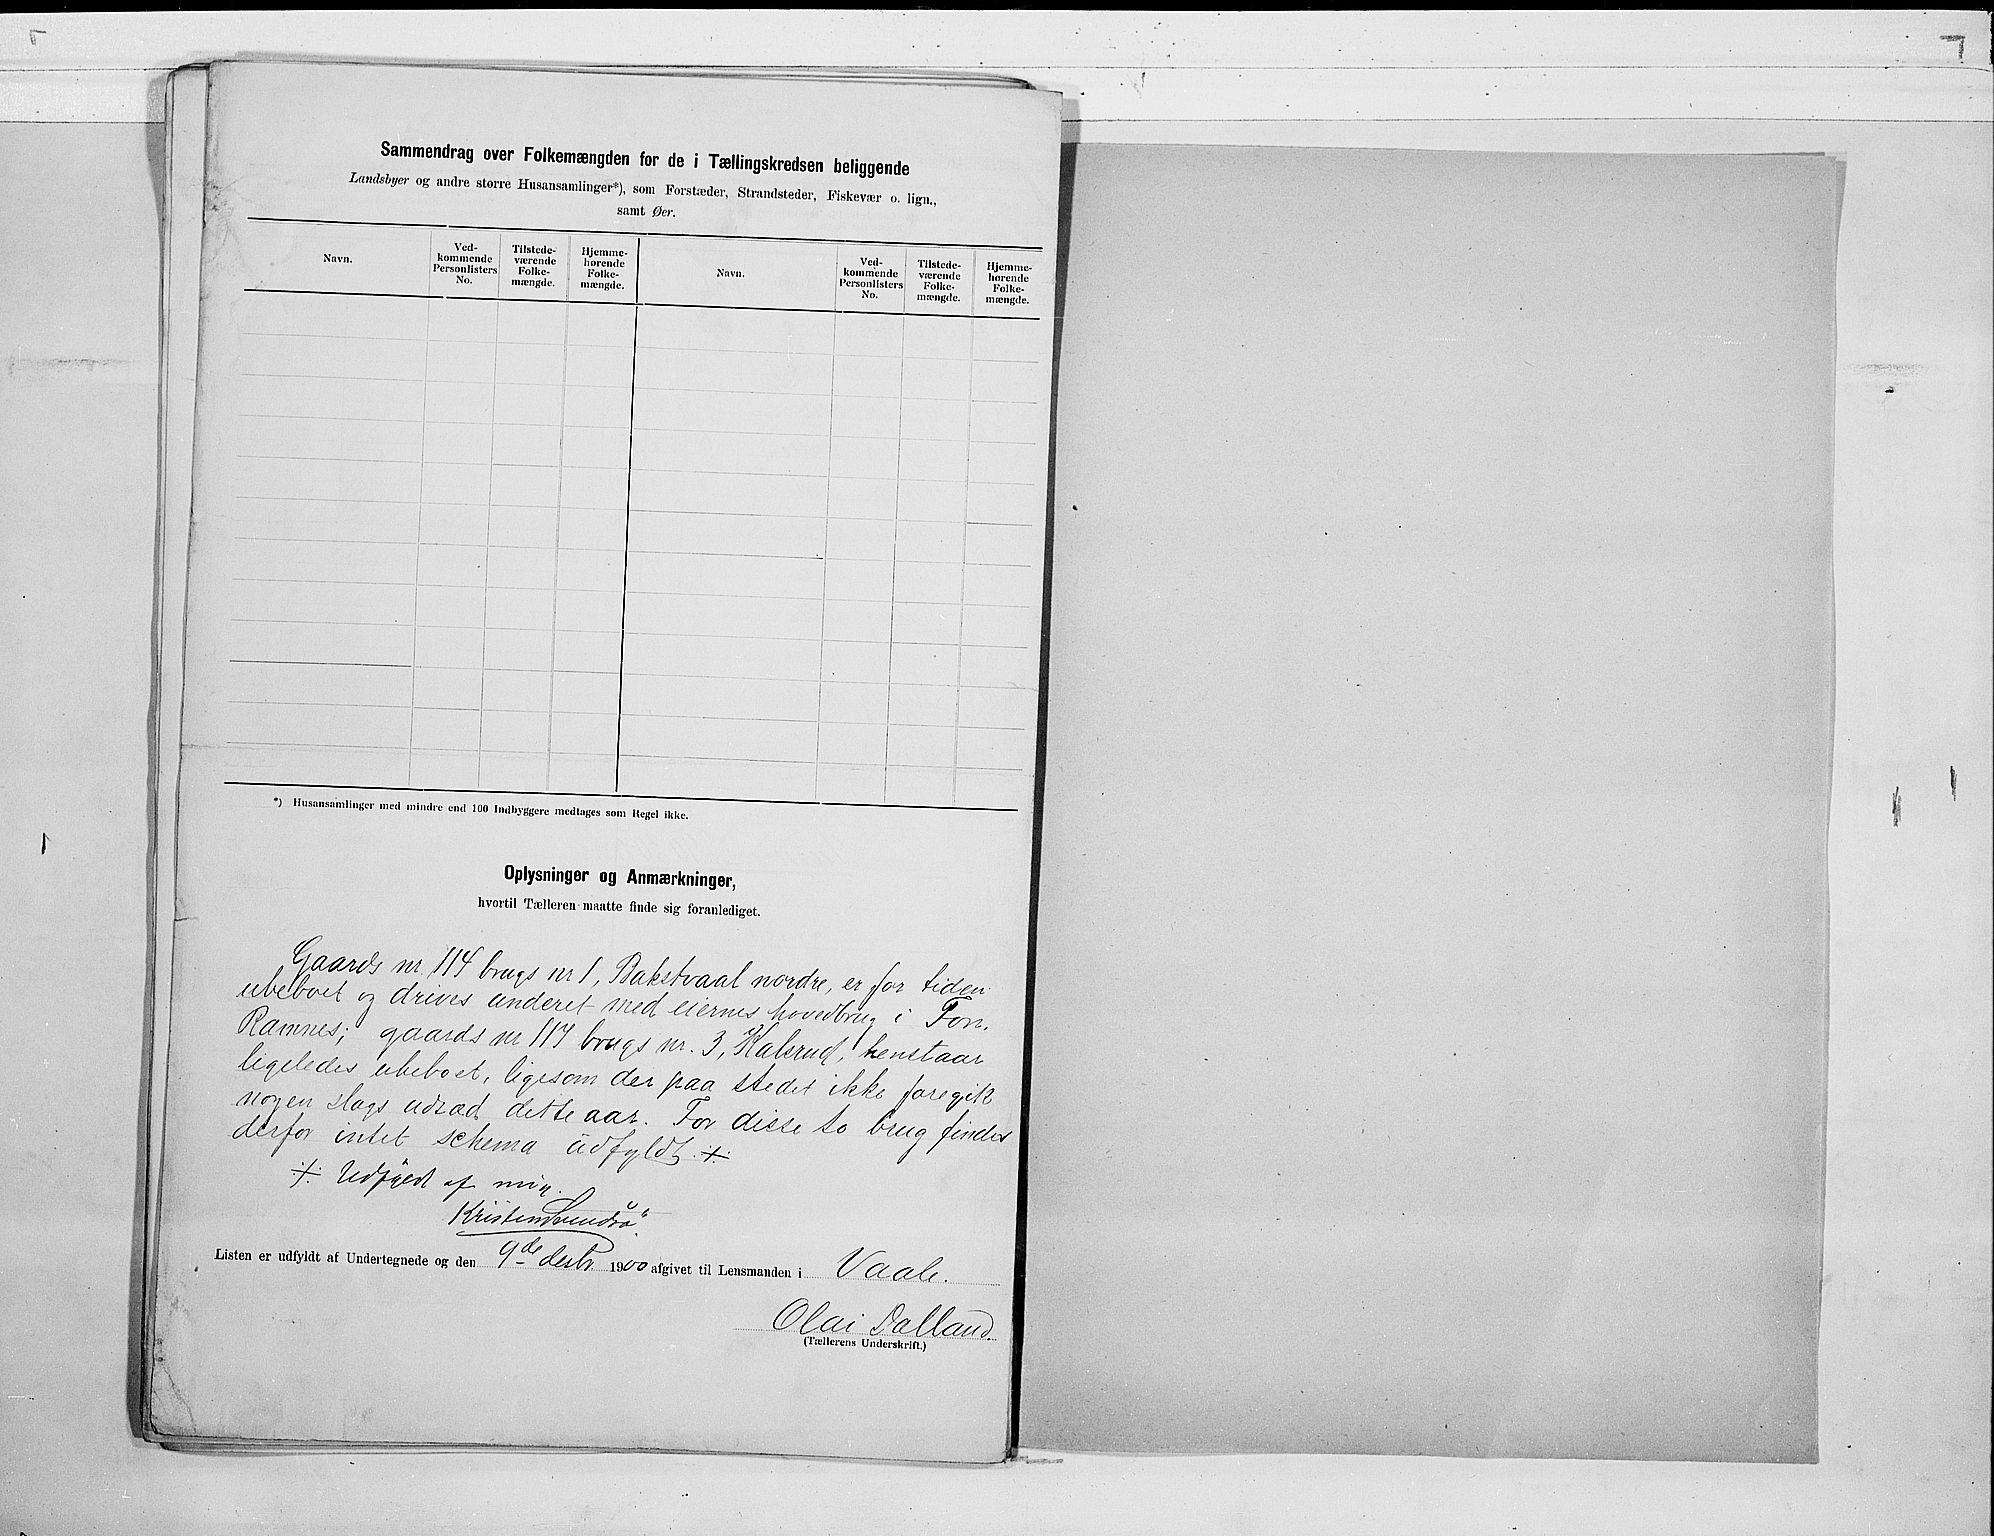 Sammendrag over Folkemængden for de i Tællingskredsen beliggende
Landsbyer og andre større Husansamlinger*), som Forstæder, Strandsteder, Fiskevær o. lign.,
samt Øer.
Navn.
Ved-
kommende
Personlisters
No.
Tilstede-
værende
Folke-
mængde.
Hjemme-
hørende
Folke-
mængde.
Navn.
Ved-
kommende
Personlisters
No.
Tilstede-
værende
Folke-
mængde.
Hjemme-
hørende
Folke-
mængde.
*) Husansamlinger med mindre end 100 Indbyggere medtages som Regel ikke.
Oplysninger og Anmærkninger,
hvortil Tælleren maatte finde sig foranlediget.
Gaards nr. 114 brugs nr 1, Bakstvaal nordre, er for tiden
ubeboet og drives underet med eiernes hovedbrug i Fon,
Ramnes; gaards nr 114 brugs nr. 3, Kalsrud, henstaar
ligeledes ubeboet, ligesom der paa stedet ikke foregik
nogen slags udsæd dette aar. For disse to brug findes
derfor intet schema udfyldt. ·/·
·/· Udfyldt af mig.
Kristen
Listen er udfyldt af Undertegnede og den 9de desbr 1900 afgivet til Lensmanden i Vaale.
Olai Dalland.
(Tællerens Underskrift.)